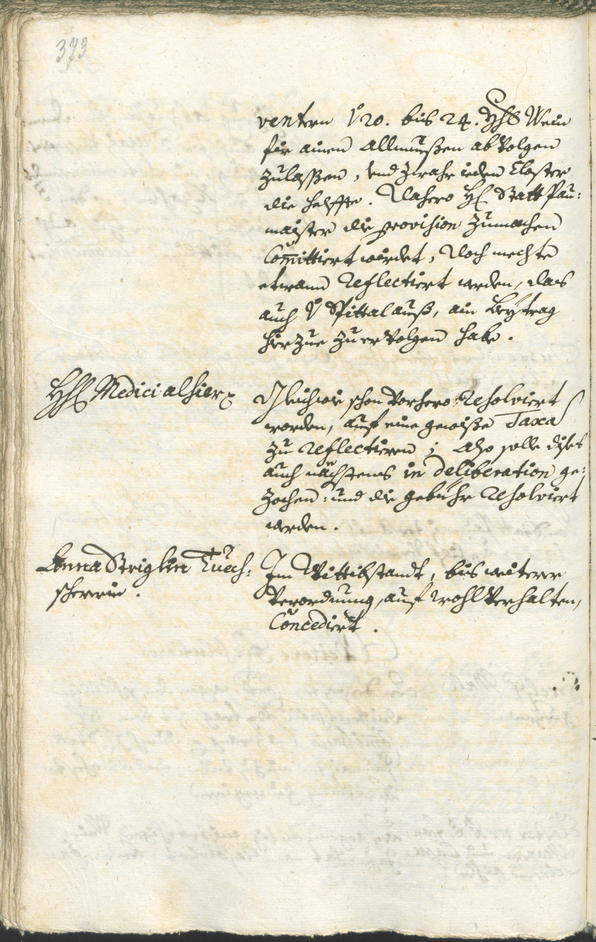 373
venten V 20. bis 24. Yhrn Wein
für einen Allmueßen abVolgen
zulaßen, vnd zwahr ieden Closter
die helffte. Dahero H: Statt Pau:
maister die provision zumachen
Committiert würdet, doch mechte
etwann reflectiert werden, das
auch V Spittal auß, ein Beytrag
hierzue zuerVolgen habe.
HH: Medici alhier
Gleichwie schon Vorhero resolviert
worden, auf eine gewiße Taxa
zu reflectieren; Also solle dises
auch nächstens in deliberation ge:
zochen: und die gebühr resolviert
werden.
Anna Striglin Tuech:
schererin.
Im Wittibstandt, bis weiterer
Verordnung, auf wohlVerhalten,
Concediert.